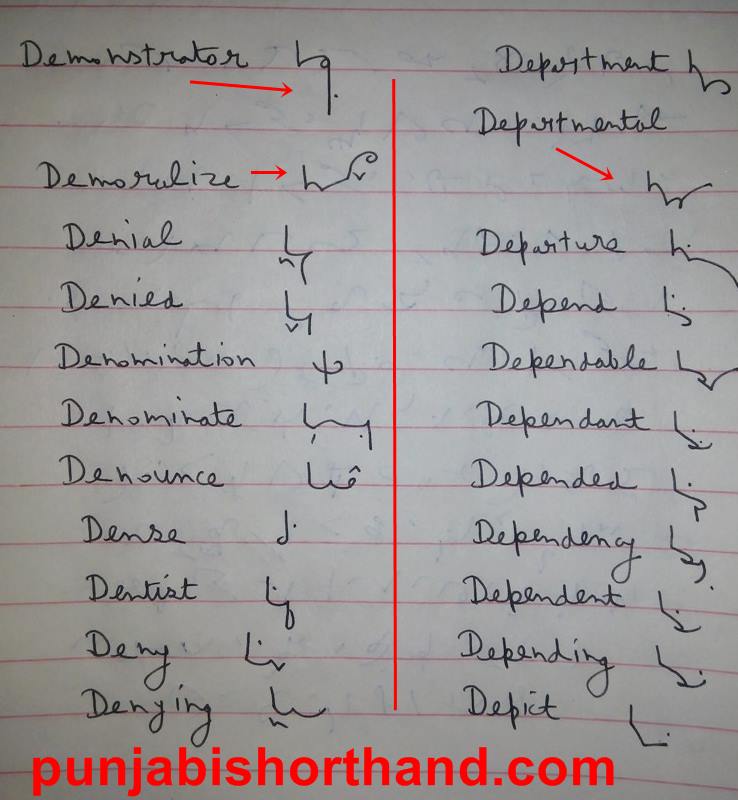 Demonstrator
Demoralize
Denial
Denied
Denomination
Denominate
Denounce
Dense
Dentist
Deny
Denying
Department
Departmental
Departure
Depend
Dependable
Dependant
Depended
Dependency
Dependent
Depending
Depict
punjabishorthand.com